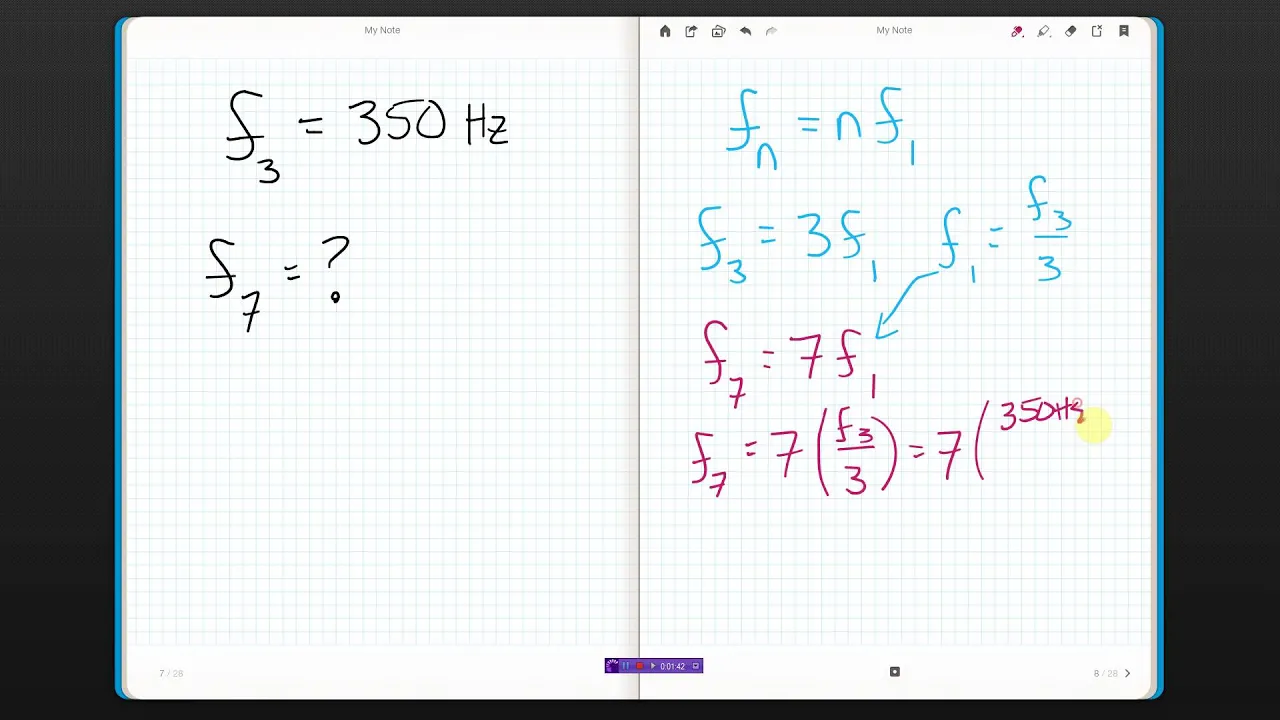 My Note
f₃ = 350 Hz
f₇ = ?
7 / 28
My Note
fₙ = n f₁
f₃ = 3 f₁ f₁ = f₃/3
f₇ = 7 f₁
f₇ = 7 (f₃/3) = 7 ( 350 Hz
8 / 28
0:01:42